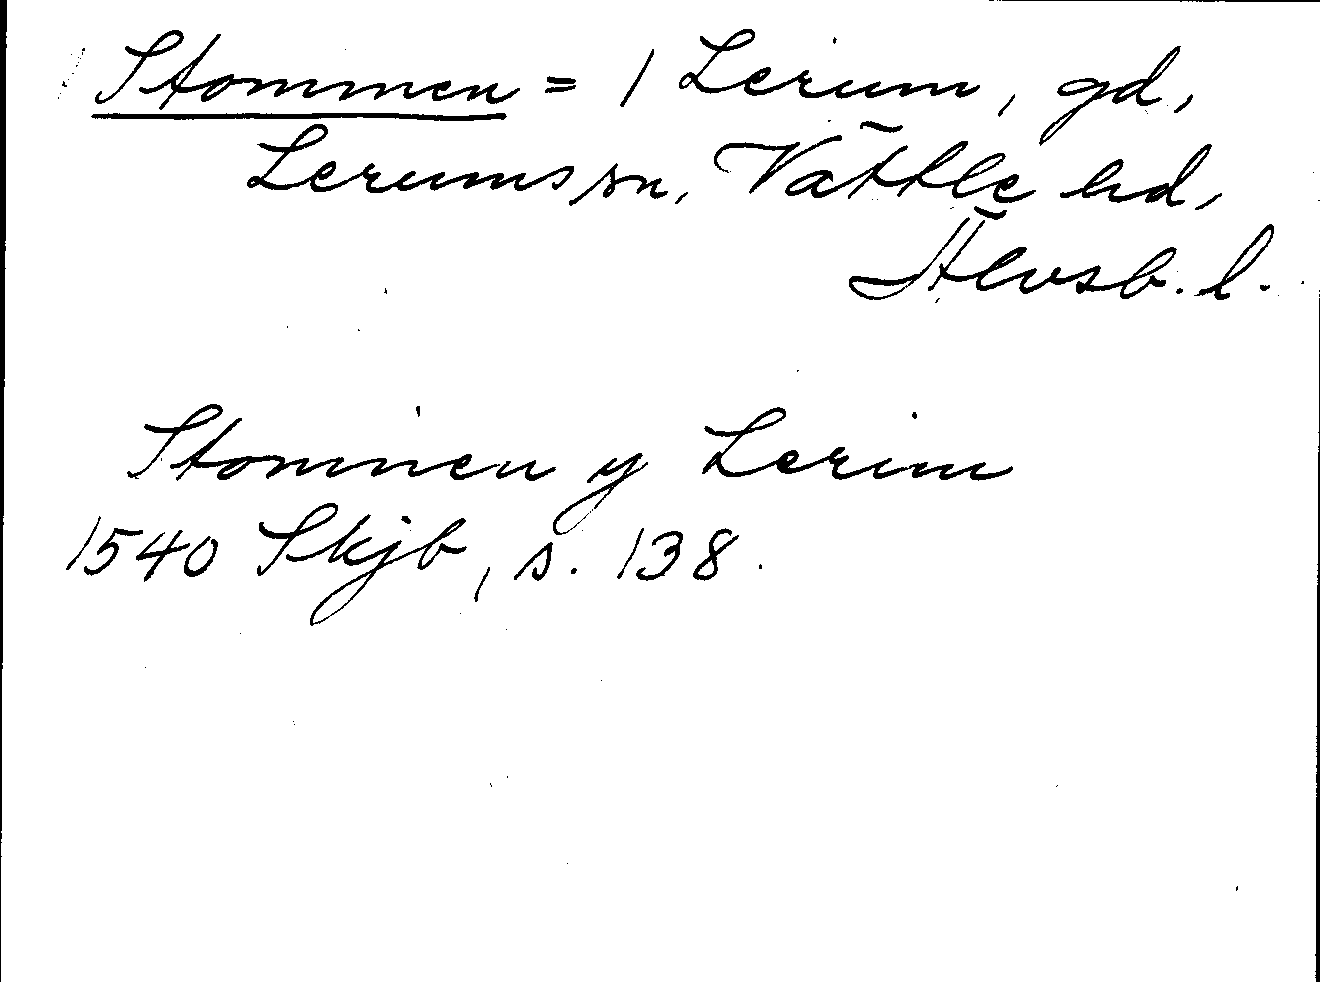 Stommen = 1 Lerum, gd,
Lerums sn, Vättle hd,
Älvsb. l.
Stommen y Lerim
1540 Skjb, s. 138.